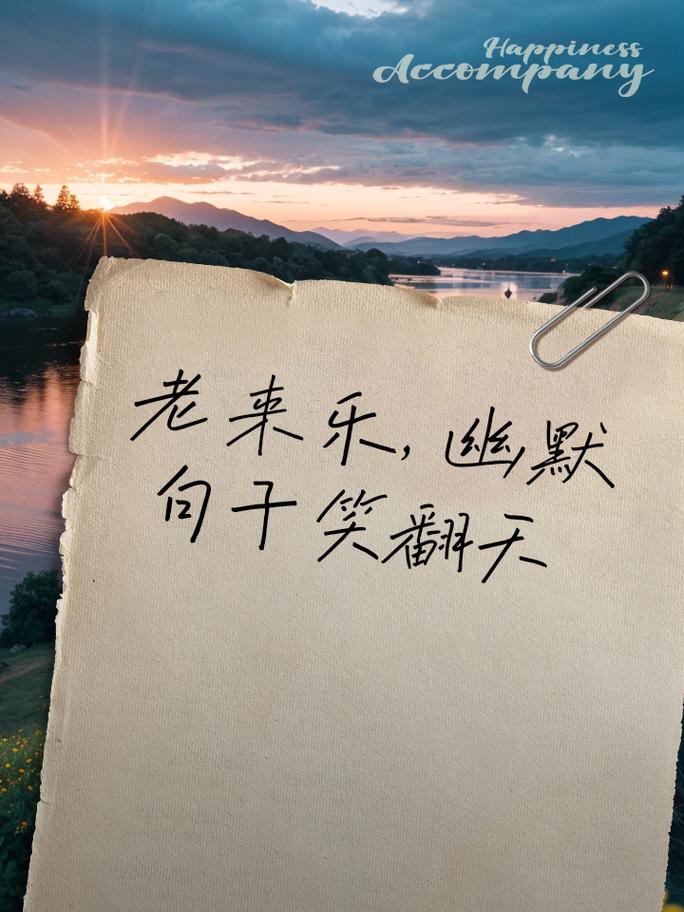 Happiness
Accompany
老来乐，幽默
句子笑翻天